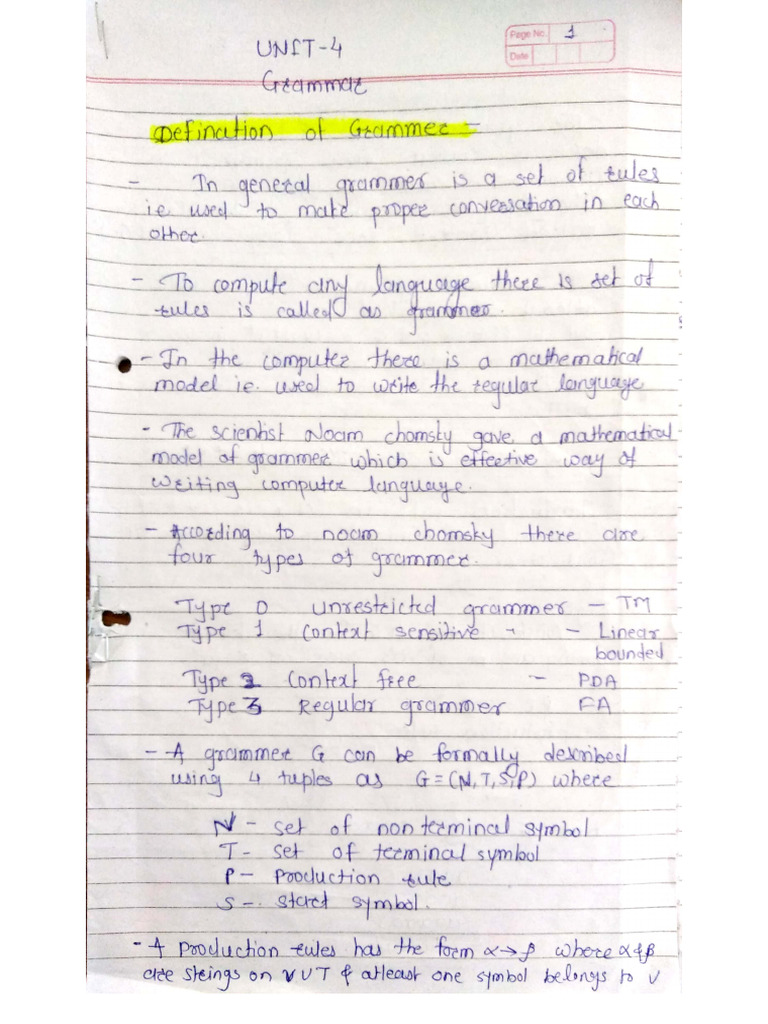 Page No. 1
Date
UNIT-4
Grammar
Defination of Grammer -
- In general grammer is a set of rules
i.e. used to make proper conversation in each
other.
- To compute any language there is set of
rules is called as grammer.
- In the computer there is a mathematical
model i.e. used to write the regular language
- The scientist Noam chomsky gave a mathematical
model of grammer which is effective way of
writing computer language.
- According to noam chomsky there are
four types of grammer.
Type 0 unrestricted grammer - TM
Type 1 Context sensitive - - Linear
bounded
Type 2 Context free - PDA
Type 3 Regular grammer FA
- A grammer G can be formally described
using 4 tuples as G = (N, T, S, P) where
N - set of non terminal symbol
T - set of terminal symbol
P - production rule
S - start symbol.
- A production rules has the form α → β where α & β
are strings on V U T & atleast one symbol belongs to V